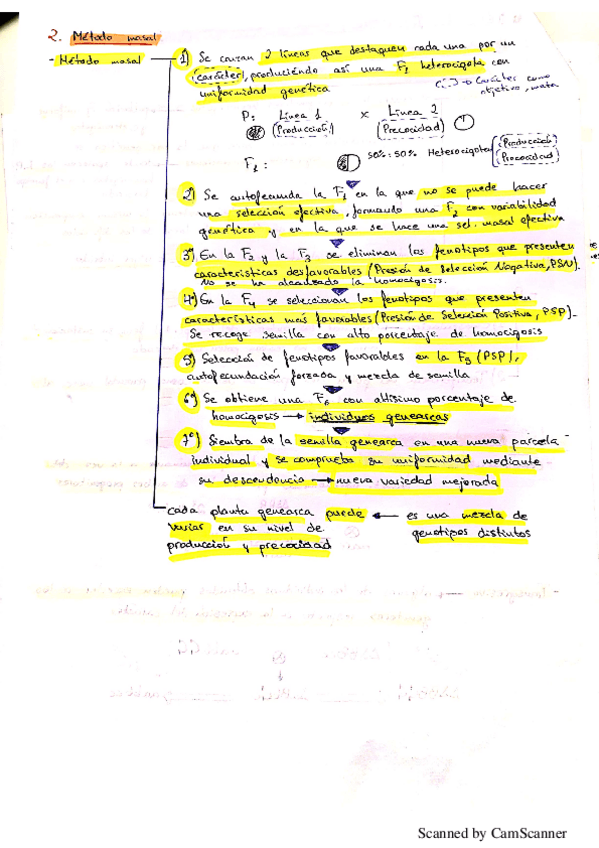 2. Método masal
- Método masal
1) Se cruzan 2 líneas que destaquen cada una por un
(carácter), produciéndo así una F1 heterocigota con
uniformidad genética
(...)→ Carácter como
objetivo, meta
P: Línea 1 x Línea 2
(Producción) (Precocidad)
F1: 50% : 50% Heterocigota (Producción)
(Precocidad)
2) Se autofecunda la F1 en la que no se puede hacer
una selección efectiva, formando una F2 con variabilidad
genética y en la que se hace una sel. masal efectiva
3º) En la F2 y la F3 se eliminan los fenotipos que presenten
características desfavorables (Presión de Selección Negativa, PSN).
No se ha alcanzado la homocigosis.
4º) En la F4 se seleccionan los fenotipos que presenten
características más favorables (Presión de Selección Positiva, PSP).
Se recoge semilla con alto porcentaje de homocigosis
5) Selección de fenotipos favorables en la F5 (PSP),
autofecundación forzada y mezcla de semilla
6º) Se obtiene una F6 con altísimo porcentaje de
homocigosis → individuos genearcas
7º) Siembra de la semilla genearca en una nueva parcela
individual y se comprueba su uniformidad mediante
su descendencia → nueva variedad mejorada
cada planta genearca puede ← es una mezcla de
variar en su nivel de genotipos distintos
producción y precocidad
Scanned by CamScanner